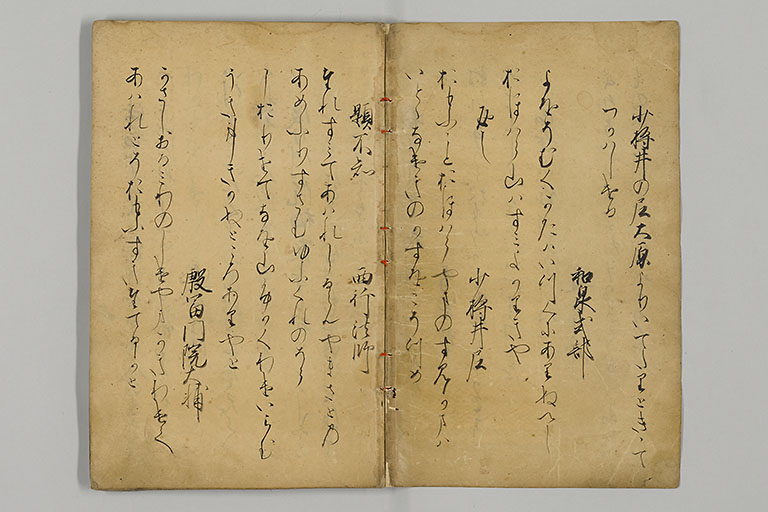 少将井の尼大原よりいてたりときいて
つかはしける
和泉式部
よをそむくかたはいつくにありぬへし
おほはら山はすみよかりきや
返し
少将井尼
おもふことおほはらやまのすみかまは
いとゝなけきのかすをこそつめ
題不知
西行法師
たれすみてあはれしるらんやまさとの
あめふりすさむゆふくれのそら
しおりせてなを山ふかくわけいらむ
うきこときかぬところありやと
殷富門院大輔
かさしおるみわのしけやまかきわけて
あはれとそおもふすきたてるかと